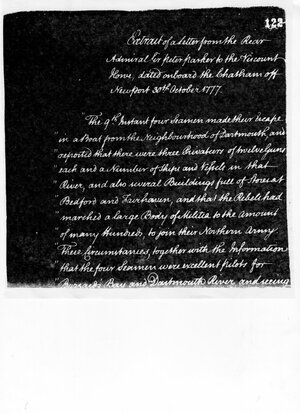 122
Extract of a Letter from the Rear
Admiral Sir Peter Parker to the Viscount
Howe, dated onboard the Chatham off
Newport 30th October 1777.
The 9th Instant four Seamen made their Escape
in a Boat from the Neighbourhood of Dartmouth, and
reported that there were three Privateers of twelve Guns
each and a Number of Ships and Vessels in that
River, and also several Buildings full of Stores at
Bedford and Fairhaven, and that the Rebels had
marched a large Body of Militia to the Amount
of many Hundreds, to join their Northern Army.
These Circumstances, together with the Information
that the four Seamen were excellent pilots for
Bay and Dartmouth River, and seeing